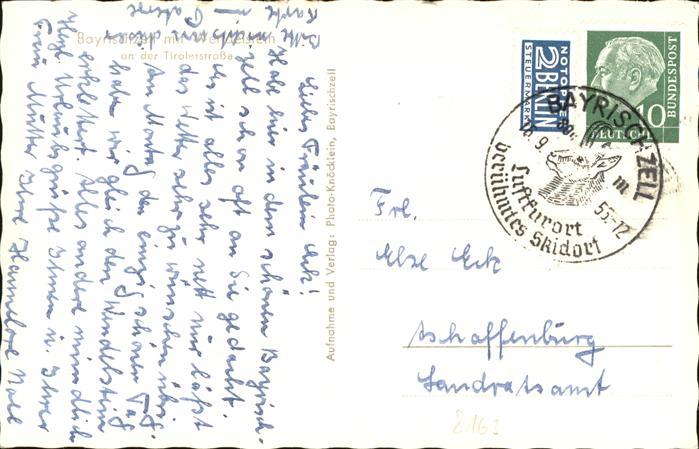 Bayrischzell mit Wendelstein
an der Tirolerstraße
Bitte
Karte
nicht
Liebes Fräulein Eck!
Habe hier in dem schönen Bayrisch-
zell schon oft an Sie gedacht.
Es ist alles sehr nett nur läßt
das Wetter sehr zu wünschen übrig.
Am Montag den einzig schönen Tag
haben wir gleich den Wendelstein
erklettert. Alles andere mündlich
Herzl. Urlaubsgrüße Ihnen u. Ihrer
Frau Mutter Ihre Hannelore
Aufnahme und Verlag: Photo-Knöcklein, Bayrischzell
NOTOPFER
2 BERLIN
STEUERMARKE
DEUTSCHE
BUNDESPOST
10
BAYRISCHZELL
800 m
18.9.55-12
Luftkurort
berühmtes Skidorf
Frl.
Else Eck
Aschaffenburg
Landratsamt
8163